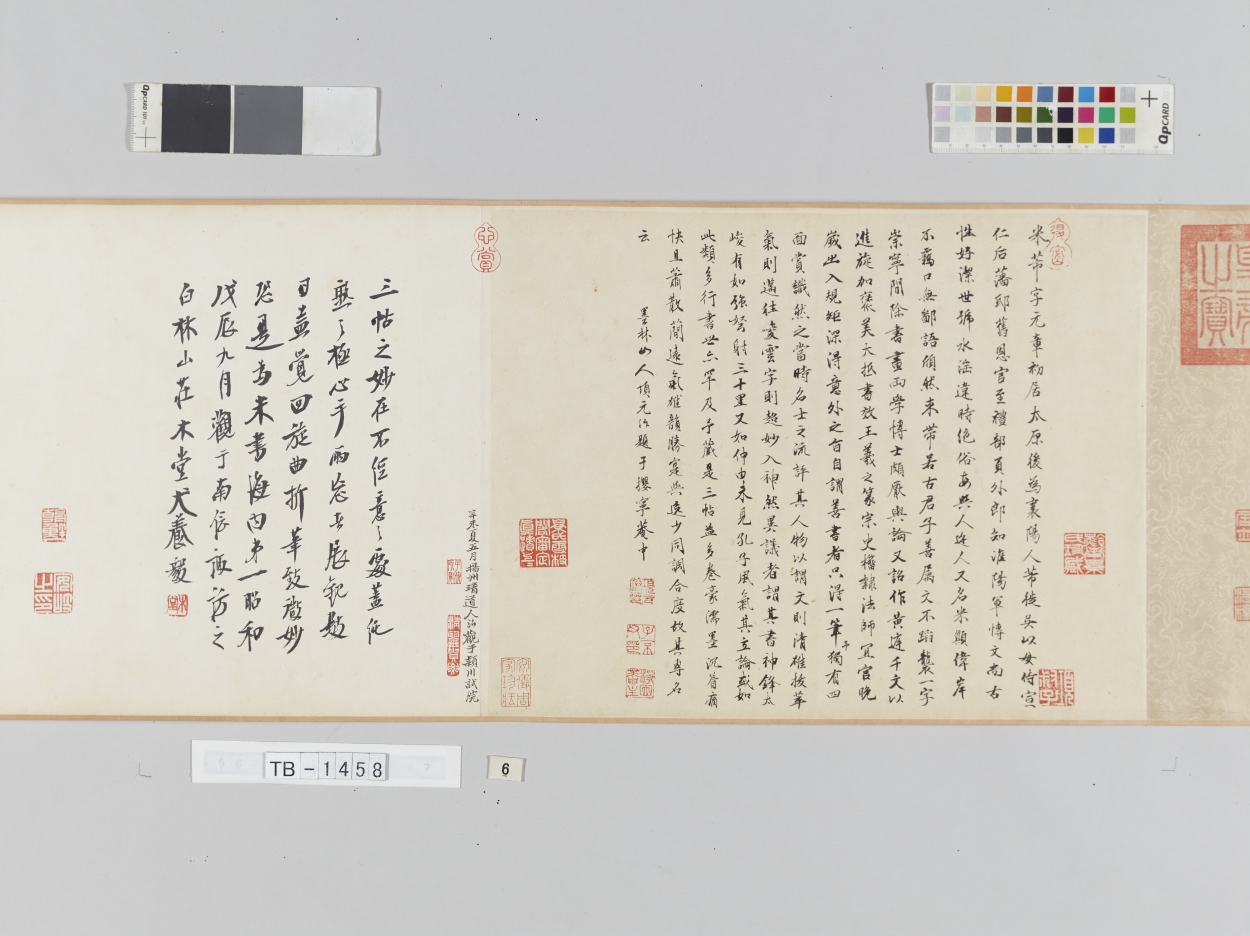 米芾字元章初居太原後為襄陽人芾徙吳以母侍宣
仁后藩邸舊恩官至禮部員外郎知淮陽軍博文尚古
性好潔世號水淫違時絕俗每與人迕人又名米顛偉岸
不羈口無鄙語頎然束帶若古君子善屬文不蹈襲一字
崇寧間除書畫兩學博士頗厭輿論又詔作黃庭千文以
進旋加褒美大抵書效王羲之篆宗史籀隸法師宜官晚
歲出入規矩深得意外之旨自謂善書者只得一筆予獨有四
面賞識然之當時名士之流評其人物以謂文則清雄拔萃
氣則邁往凌雲字則超妙入神然異議者謂其書神鋒太
峻有如強弩射三十里又如仲由未見孔子風氣其立論或如
此類多行書世亦罕及予藏是三帖益多卷豪濡墨沉着痛
快且蕭散簡遠氣雄韻勝寔與逸少同調合度故其專名
云
墨林山人項元汴題于攖寧菴中
辛未夏五月揚州靖道人治觀于潁川試院
三帖之妙在不經意之處蓋從
熟之極心手兩忘去展觀數
日益覺回旋曲折筆致微妙
洵是為米書海内第一昭和
戊辰九月觀于南信酒訪之
白林山莊木堂犬養毅
TB-1458
6
QPCARD 101
QPCARD